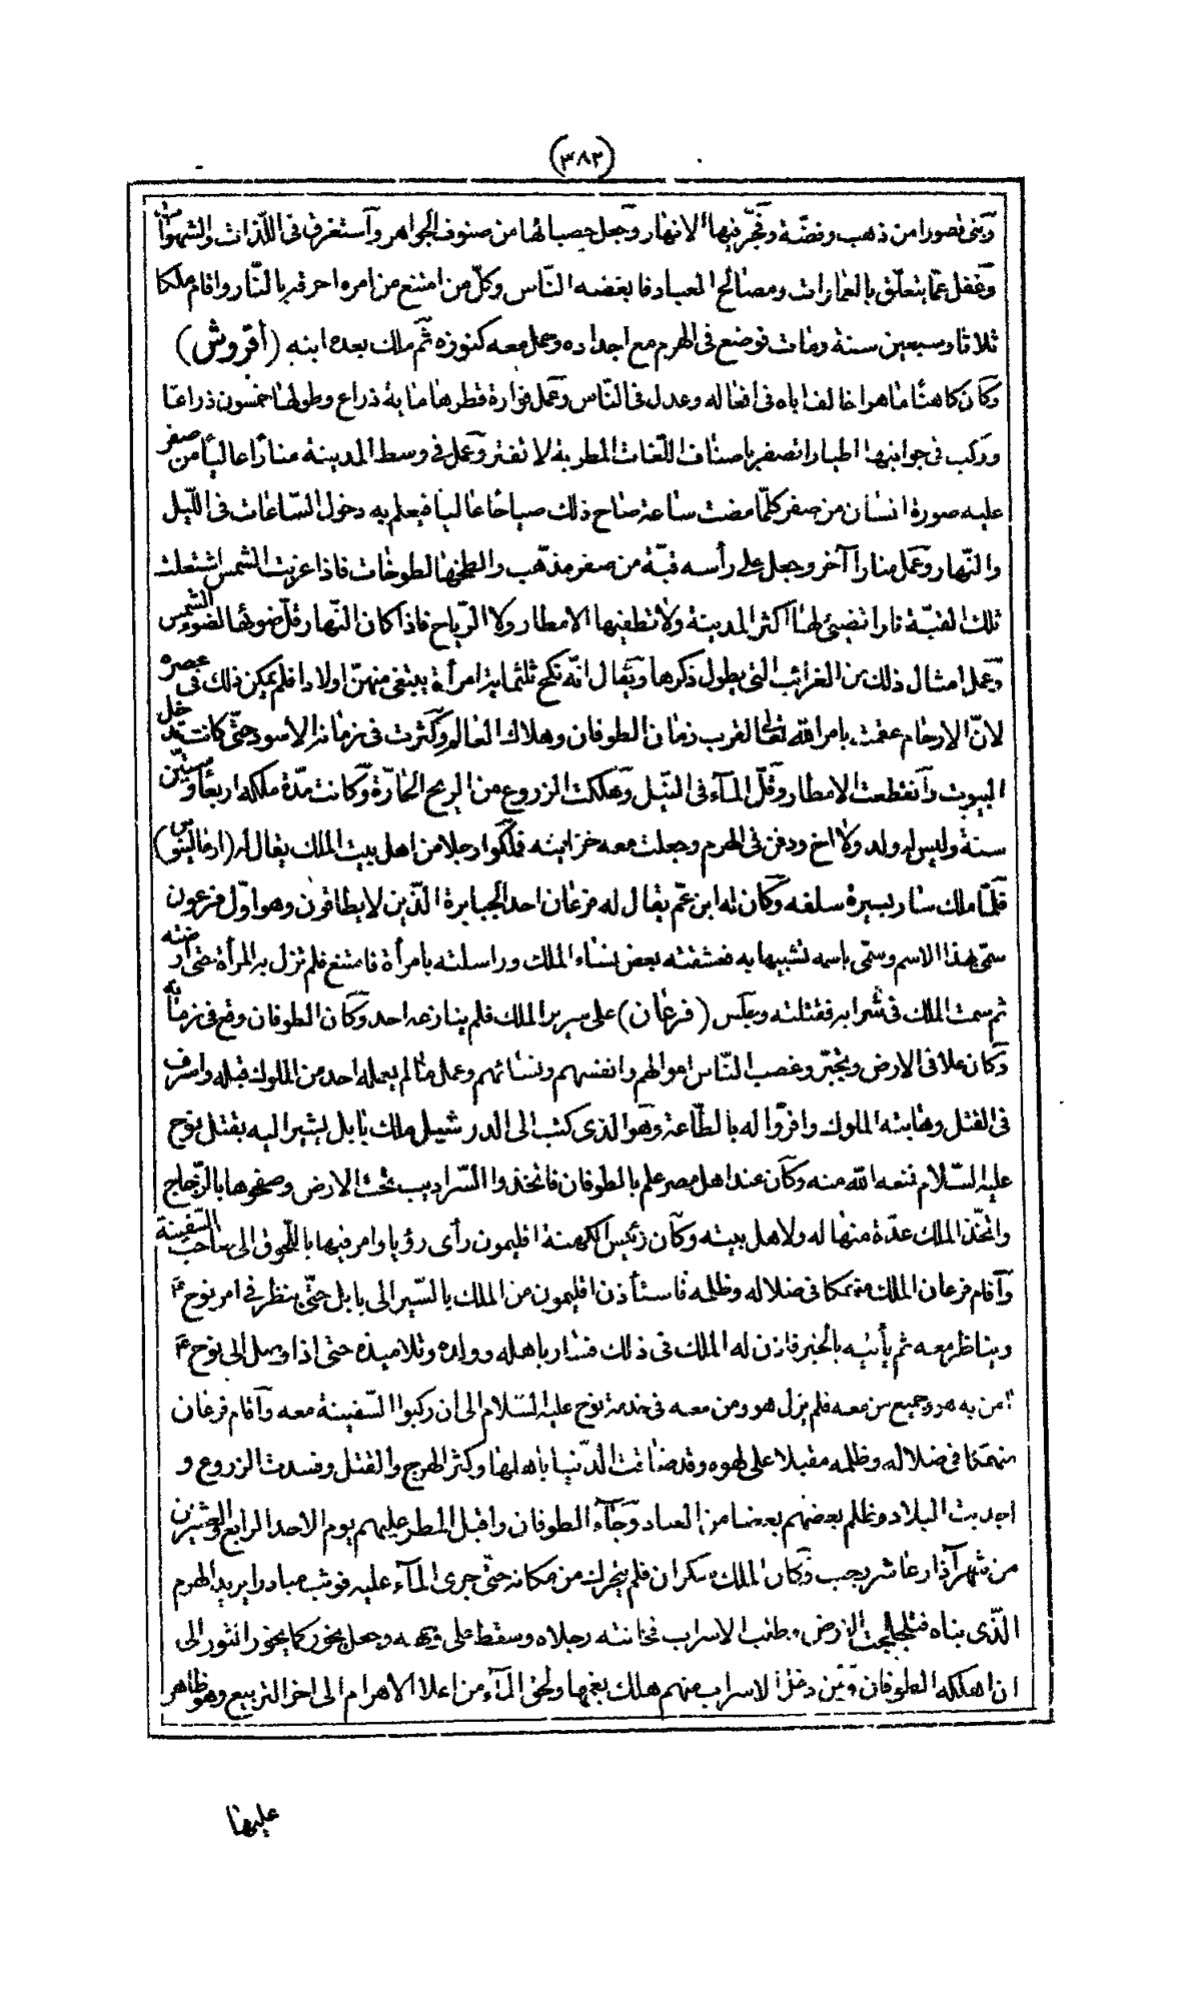 (٣٨٢)
وبنى قصورا من ذهب وفضة وفجّر فيها الانهار وجعل حصبائها من صنوف الجواهر وآستغرق فى اللّذات والشهوات
وغفل عمّا يتعلّق بالعمارات ومصالح العباد فابغضه النّاس وكلّ من امتنع من امره احرقه بالنّار واقام ملكا
ثلاثا وسبعين سنة ومات فوضع فى الهرم مع اجداده وعمل معه كنوزه ثمّ ملك بعده ابنه (أفروش)
وكان كاهنًا ماهرا خالف اباه فى افعاله وعدل فى النّاس وعمل فوارة قطرها مأية ذراع وطولها خمسون ذراعًا
وركب فى جوانبها اطيارا تصفر باصناف اللّغات المطربة لا تفتر وعمل فى وسط المدينة منارًا عاليًا من صفر
عليه صورة انسان من صفر كلّما مضت ساعة صاح ذلك صياحًا عاليا فيعلم به دخول السّاعات فى اللّيل
والنّهار وعمل منارا آخر وجعل على رأسه قبّة من صفر مذهّب ولطخها لطوخات فاذا غربت الشمس اشتعلت
تلك القبّة نارا تضيئ لها اكثر المدينة ولا تطفيها الامطار ولا الرّياح فاذا كان النّهار قلّ ضوئها لضوء الشمس
وعمل امثال ذلك من الغرائب التى يطول ذكرها ويقال انّه نكح ثلثمائة امرأة يبتغى منهنّ اولادا فلم يمكن ذلك فى عصره
لانّ الارحام عقمت بامر الله تعالى لقرب زمان الطوفان وهلاك العالم وكثرت فى زمانه الاسود حتّى كانت تدخل
البيوت وآنقطعت الامطار وقلّ المآء فى النّيل وهلكت الزروع من الريح الحارّة وكانت مدّة ملكه اربعًا وستّين
سنة وليس له ولد ولا اخ ودفن فى الهرم وجعلت معه خزاينه فملّكوا رجلا من اهل بيت الملك يقال له (ارمالينوس)
فلمّا ملك سار بسيرة سلفه وكان له ابن عمّ يقال له فرعان احد الجبابرة الّذين لا يطاقون وهو اوّل فرعون
سمّى بهذا الاسم وسمّى باسمه تشبيها به فعشقته بعض نساء الملك وراسلته بامرأة فامتنع فلم تزل به المرأة حتى ارضته
ثم سمت الملك فى شرابه فقتلته وجلس (فرعان) على سرير الملك فلم ينازعه احد وكان الطوفان وقع فى زمانه
وكان علا فى الارض وتجبّر وغصب النّاس اموالهم وانفسهم ونسائهم وعمل ما لم يعمله احد من الملوك قبله واسرف
فى القتل وهابته الملوك واقرّوا له بالطّاعة وهو الذى كتب الى الدرشيل ملك بابل يشير اليه بقتل نوح
عليه السّلام فمنعه الله منه وكان عند اهل مصر علم بالطوفان فاتخذوا السّراديب تحت الارض وصفحوها بالزّجاج
واتخذ الملك عدّة منها له ولاهل بيته وكان رئيس الكهنة اقليمون رأى رؤيا وامر فيها باللّحوق الى صاحب السّفينة
وآقام فرعان الملك منهمكا فى ضلاله وظلمه فاستأذن اقليمون من الملك بالسّير الى بابل حتّى ينظر فى امر نوح ع
ويناظر معه ثم يأتيه بالخبر فاذن له الملك فى ذلك فسار باهله وولده وتلاميذه حتى اذا وصل الى نوح ع
آمن به هو وجميع من معه فلم يزل هو ومن معه فى خدمة نوح عليه السّلام الى ان ركبوا السّفينة معه وآقام فرعان
منهمكا فى ضلاله وظلمه مقبلا على لهوه وقد ضاقت الدّنيا باهلها وكثر الهرج والقتل وفسدت الزروع و
اجدبت البلاد وظلم بعضهم بعضا من العباد وجآء الطوفان واقبل المطر عليهم يوم الاحد الرابع والعشرين
من شهر آذار عاشر رجب وكان الملك سكران فلم يتحرك من مكانه حتّى جرى المآء عليه فوثب مبادرا يريد الهرم
الّذى بناه فتلجلجت الارض وطلب الاسراب فخانته رجلاه وسقط على وجهه وجعل يخور كما يخور الثور الى
ان اهلكه الطوفان ومن دخل الاسراب منهم هلك بغمها ولحق المآء من اعلا الاهرام الى اخر التربيع وهو ظاهر
عليها